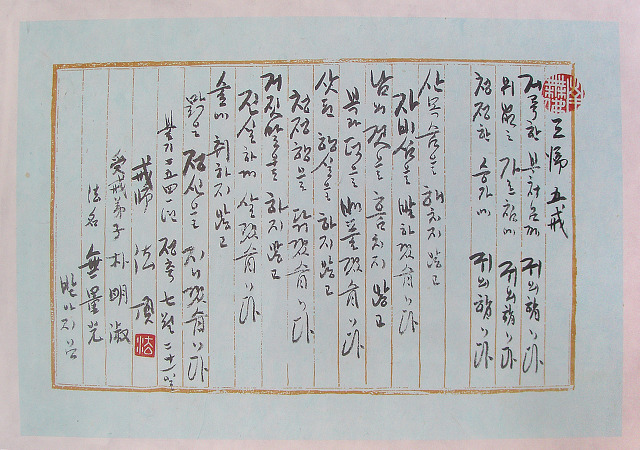 三歸五戒
거룩한 부처님께 귀의합니다
위없는 가르침에 귀의합니다
청정한 승가에 귀의합니다
산 목숨을 해치지 않고
자비심을 발하겠습니다
남의 것을 훔치지 않고
복과 덕을 베풀겠습니다
삿된 행실을 하지 않고
청정행을 닦겠습니다
거짓말을 하지 않고
진실하게 살겠습니다
술에 취하지 않고
맑은 정신을 지니겠습니다
불기 二五四一년 정축 七월 二十一일
戒師 法頂 法
受戒弟子 朴明淑
法名 無量光
받아지님